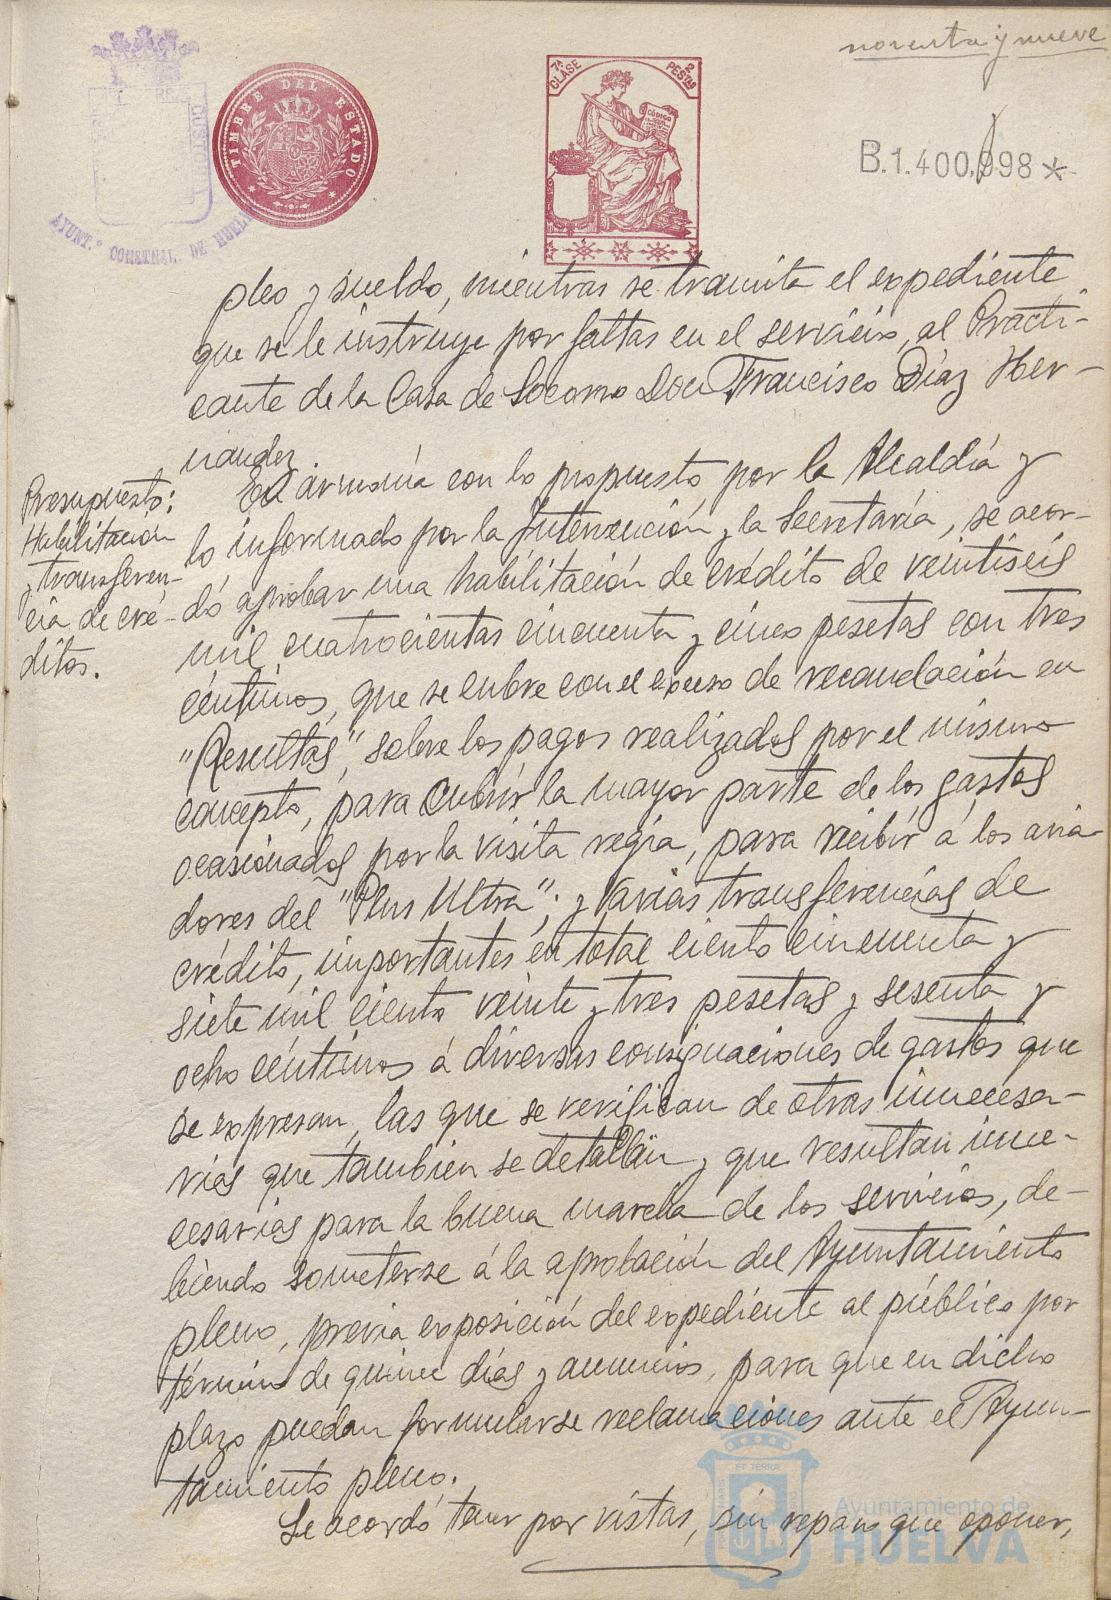 noventa y nueve
TIMBRE DEL ESTADO
7ª CLASE
2 PESTAS
CÓDIGO
B.1.400,998*
CUSTO
AYUNT.º CONSTNAL. DE HUELV
pleo y sueldo, mientras se tramita el expediente
que se le instruye por faltas en el servicio, al Practi-
cante de la Casa de Socorro Don Francisco Díaz Her-
nández.
Presupuesto:
Habilitación
y transferen-
cia de cré-
ditos.
En armonía con lo propuesto por la Alcaldía y
lo informado por la Intervención y la Secretaría, se acor-
dó aprobar una habilitación de crédito de veintiseis
mil cuatrocientas cincuenta y cinco pesetas con tres
céntimos, que se cubre con el exceso de recaudación en
"Resultas", sobre los pagos realizados por el mismo
concepto, para cubrir la mayor parte de los gastos
ocasionados por la visita regia, para recibir á los avia
dores del "Plus Ultra"; y varias transferencias de
crédito, importantes en total ciento cincuenta y
siete mil ciento veinte y tres pesetas y sesenta y
ocho céntimos á diversas consignaciones de gastos que
se expresan, las que se verifican de otras innecesa-
rias que tambien se detallan y que resultan inne-
cesarias para la buena marcha de los servicios, de-
biendo someterse á la aprobación del Ayuntamiento
pleno, previa exposición del expediente al público por
término de quince días y anuncios, para que en dicho
plazo puedan formularse reclamaciones ante el Ayun-
tamiento pleno.
Se acordó tener por vistas, sin reparo que oponer,
ET TERRA
Ayuntamiento de
HUELVA